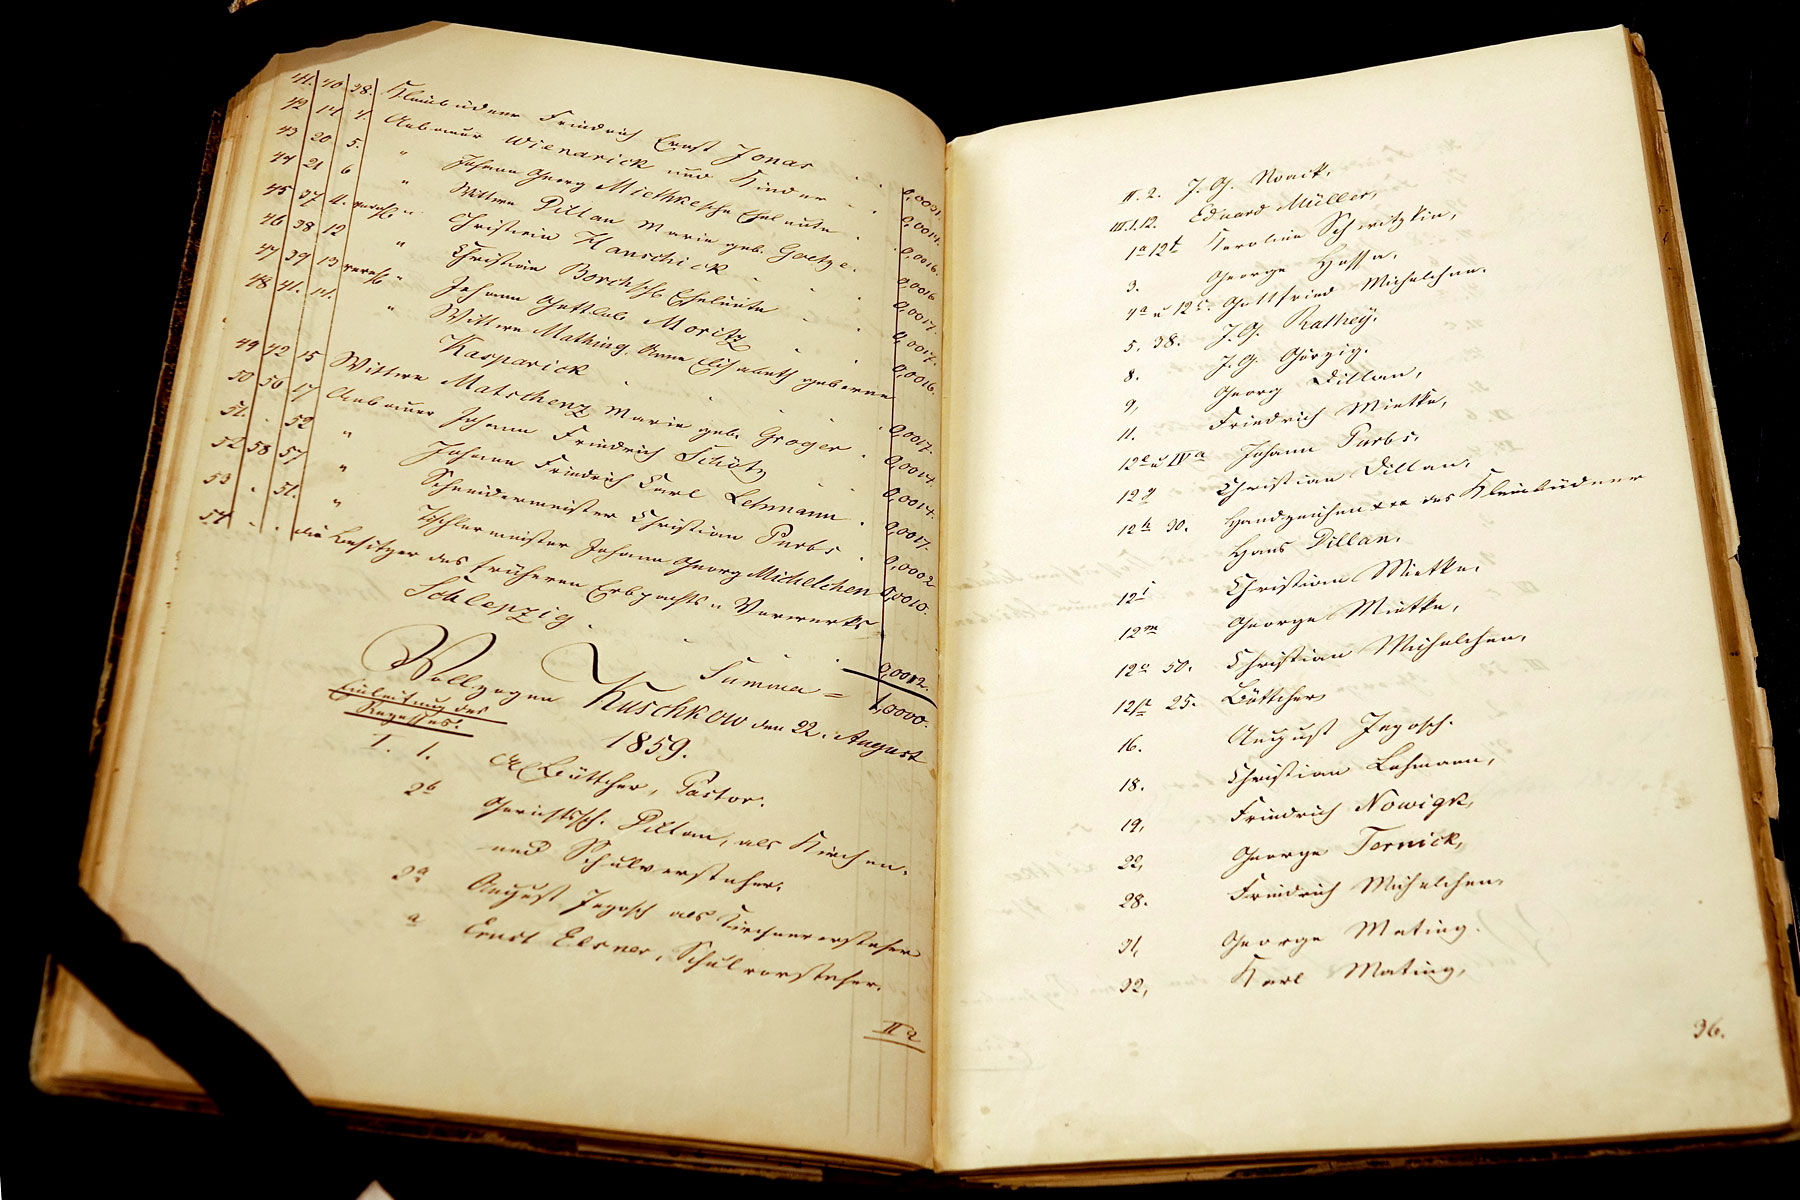 41. 40. 38. Kleinbüdner Friedrich Ernst Jonas 0,0021.
42 14 4. Anbauer Wienarick und Kinder 0,0014.
43 20 5. " Johann Georg Miethkesche Eheleute 0,0016.
44 21 6 " Wittwe Dillan Marie geb. Goetze. 0,0016
45 37 4. " Christian Hanschick 0,0017.
46 38 12 " Christian Borchsche Eheleute 0,0017.
47 39 13 " Johann Gottlob Moritz 0,0016.
48 41. 14. " Wittwe Mathing, Anna Elisabeth geborene
Kasparick 0,0017.
49 42 15 Wittwe Matschenz Marie geb. Groger 0,0014.
50 56 17 Anbauer Johann Friedrich Schötz 0,0014.
51. . 52 " Johann Friedrich Carl Lehmann 0,0017.
52 58 57 " Schneidermeister Christian Purbs 0,0002
53 . 51. " Tischlermeister Johann Georg Michelchen 0,0010.
54 . . die Besitzer des früheren Erbpachts-Vorwerks
Schlepzig. 0,0012.
Summa = 1,0000.
Vollzogen Kuschkow den 22. August
1859.
Einleitung des
Rezesses.
I. 1. A Böttcher, Pastor.
2b Gerichtssch. Dillan, als Kirchen-
und Schulvorsteher.
2a August Jegosch als Kirchenvorsteher
a Ernst Elsner, Schulvorsteher.
II 2
II. 2. J. G. Noack.
III.1.12. Eduard Müller,
1a 12t Karoline Schwitzkin,
3. George Hossa.
4a u 12c. Gottfried Michelchen.
5. 38. J. G. Rathey.
8. J. G. Görzig.
9, Georg Dillan,
11. Friedrich Mietke,
12e u IVa Johann Purbs.
12g Christian Dillan.
12h 30. Handzeichen xxx des Kleinbüdner
Hans Dillan.
12i Christian Mietke.
12m George Mietke,
12o 50. Christian Michelchen,
12p 25. Böttcher
16. August Jegosch.
18. Christian Lehmann,
19, Friedrich Nowigk,
22, George Ternick,
28. Friedrich Michelchen
31, George Mating.
32, Karl Mating,
36.